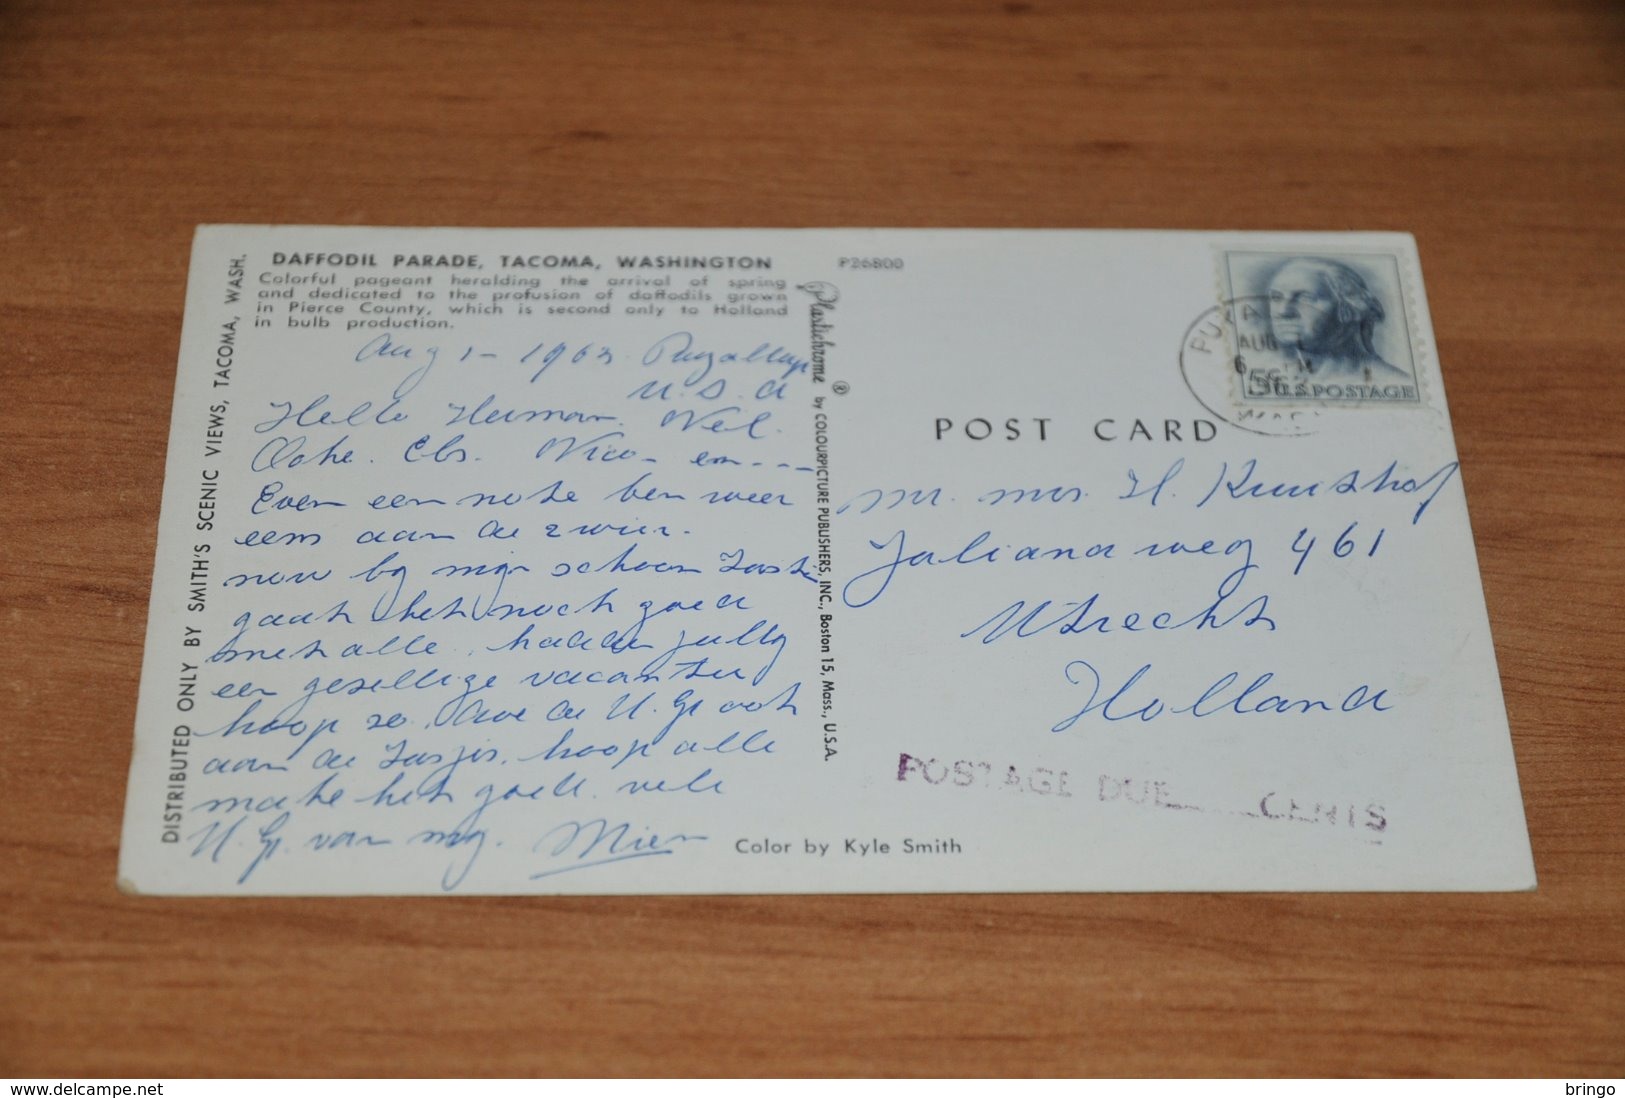 DAFFODIL PARADE, TACOMA, WASHINGTON
Colorful pageant heralding the arrival of spring
and dedicated to the profusion of daffodils grown
in Pierce County, which is second only to Holland
in bulb production.
P26800
DISTRIBUTED ONLY BY SMITH'S SCENIC VIEWS, TACOMA, WASH.
Plastichrome ® by COLOURPICTURE PUBLISHERS, INC., Boston 15, Mass., U.S.A.
Aug 1 - 1963 Puyallup
U.S.A
Hello Herman. Nel.
Nico en - - -
Even een note ben weer
eens aan de zwier.
now by myn schoon
gaat het noch goed
met alle. hadden jully
een gezellige vacantie
hoop zo. doe de H. G. ook
aan de hoop alle
make het goed. vele
H. G. van my. Mien
Color by Kyle Smith
POST CARD
5¢ U.S. POSTAGE
AUG
mr. mrs. H. Kruishof
Juliana weg 461
Utrecht
Holland
POSTAGE DUE CENTS
delcampe.net
bringo